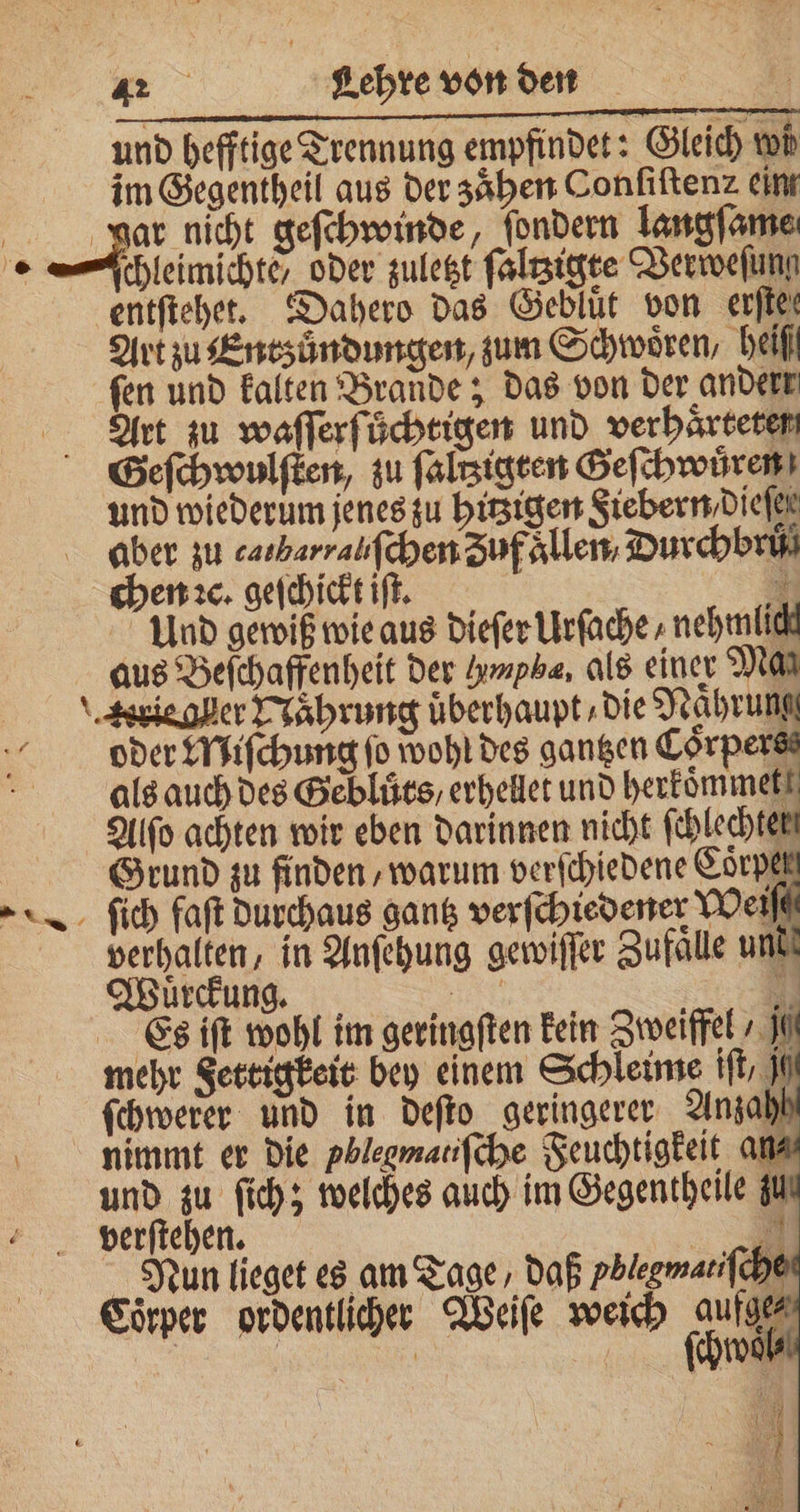 42 Lehre von den
und hefftige Trennung empfindet: Gleich wie
im Gegentheil aus der zaͤhen Conſiſtenz eine
gar nicht geſchwinde, ſondern langſame
ſchleimichte, oder zuletzt ſaltzigte Verweſung
entſtehet. Dahero das Gebluͤt von erſter
Art zu Entzuͤndungen, zum Schwoͤren, heiſ⸗
ſen und kalten Brande; das von der andern
Art zu waſſerſuͤchtigen und verhaͤrteten
Geſchwulſten, zu ſaltzigten Geſchwuͤren
und wiederum jenes zu hitzigen Fiebern, dieſes
aber zu catharraliſchen Zufaͤllen, Durchbruͤ⸗
chen ꝛc. geſchickt iſt.
Und gewiß wie aus dieſer Urſache, nehmlich
aus Beſchaffenheit der lympha, als einer Ma⸗
terie aller Naͤhrung uͤberhaupt, die Naͤhrung
oder Miſchung ſo wohl des gantzen Coͤrpers
als auch des Gebluͤts, erhellet und herkoͤmmet:
Alſo achten wir eben darinnen nicht ſchlechten
Grund zu finden, warum verſchiedene Coͤrper
ſich faſt durchaus gantz verſchiedener Weiſe
verhalten, in Anſehung gewiſſer Zufaͤlle und
Wuͤrckung.
Es iſt wohl im geringſten kein Zweiffel, je
mehr Fettigkeit bey einem Schleime iſt, je
ſchwerer und in deſto geringerer Anzahl
nimmt er die phlegmatiſche Feuchtigkeit an⸗
und zu ſich; welches auch im Gegentheile zu
verſtehen.
Nun lieget es am Tage, daß phlegmatiſche
Coͤrper ordentlicher Weiſe weich aufge⸗
ſchwoͤl⸗